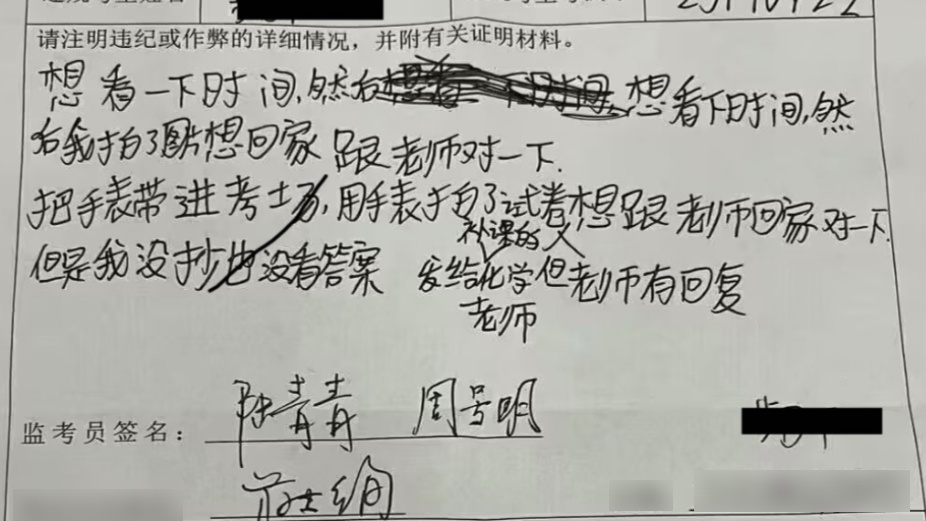 请注明违纪或作弊的详细情况，并附有关证明材料。
想看一下时间,然后想看下时间,然
后我拍了图片想回家跟老师对一下.
把手表带进考场,用手表拍了试卷想跟老师回家对一下.
补课的人
但是我没抄也没看答案 发给化学但老师有回复
老师
监考员签名：陆青青 周号明